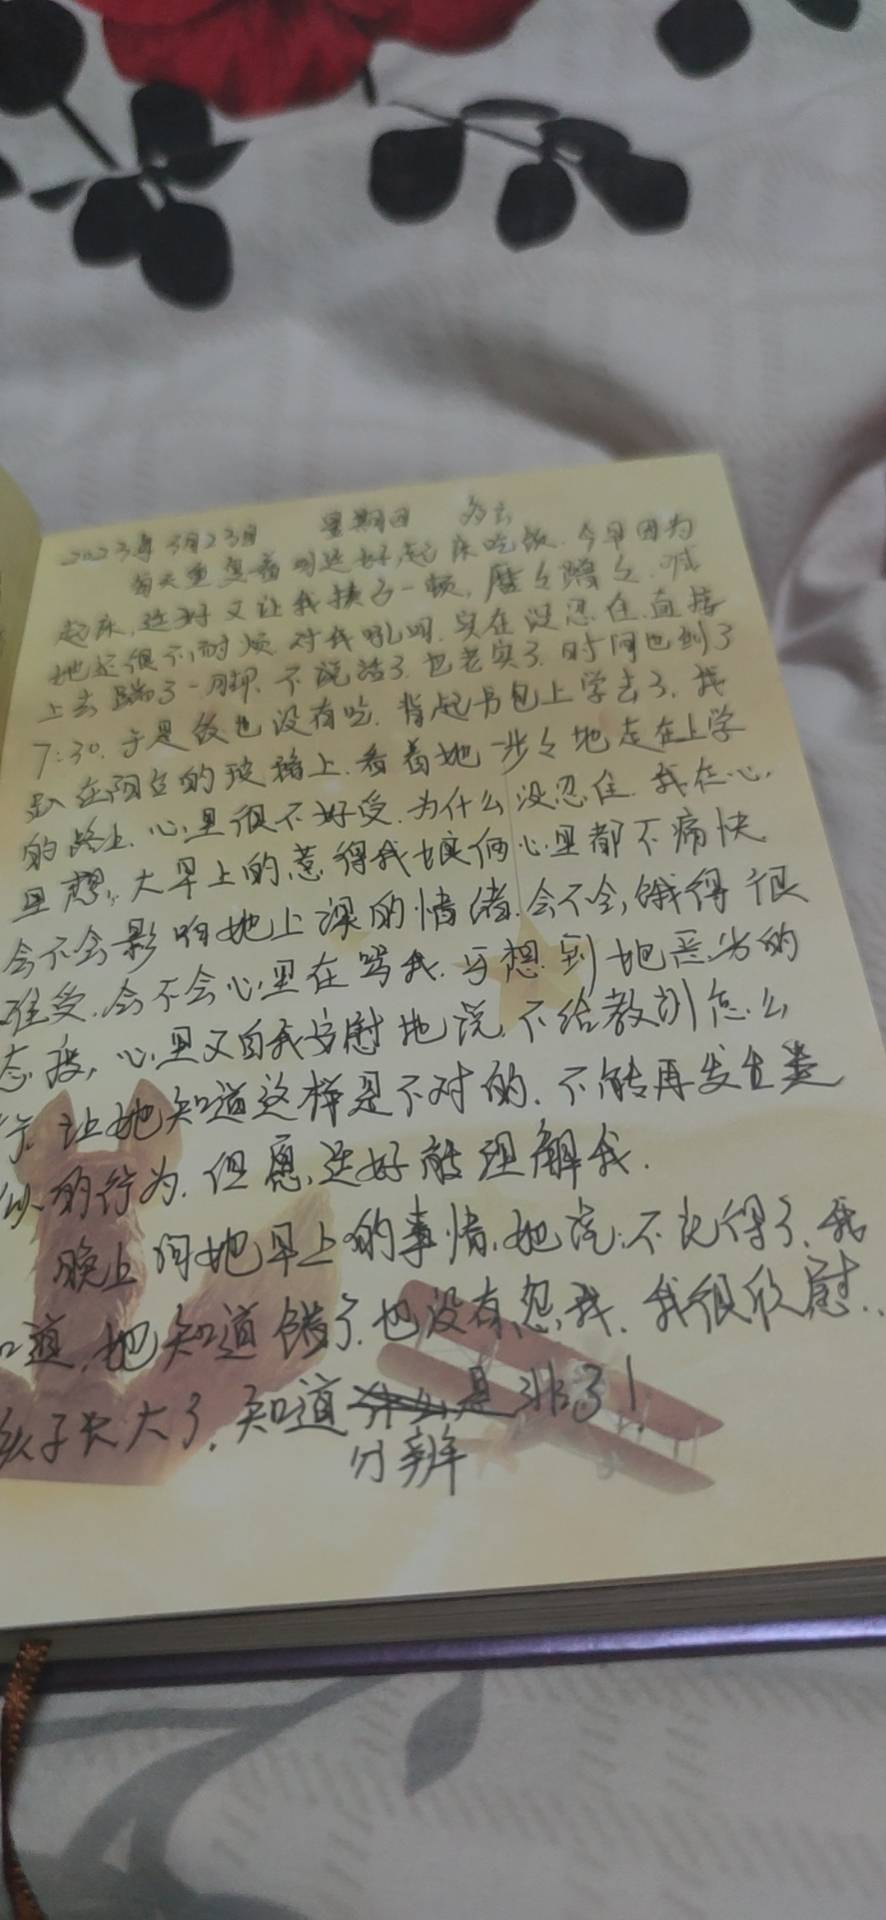 2023年3月23日 星期四 多云
每天重复着叫廷好,起床吃饭.今早因为
起床,廷好又让我揍了一顿,磨々蹭々.喊
她还很不耐烦对我吼叫.实在没忍住.直接
上去踹了一脚.不说话了.也老实了.时间也到了
7:30.于是饭也没有吃.背起书包上学去了.我
趴在阳台的玻璃上.看着她一步々地走在上学
的路上.心里很不好受.为什么没忍住.我在心
里想,大早上的惹得我娘俩心里都不痛快
会不会影响她上课的情绪.会不会,饿得很
难受.会不会心里在骂我.可想到她恶劣的
态度,心里又自我安慰地说,不给教训怎么
行.让她知道这样是不对的.不能再发生类
似的行为.但愿,廷好能理解我.
晚上问她早上的事情,她说:不记得了.我
知道,她知道错了.也没有怨我.我很欣慰..
孩子长大了,知道是非了!
分辨